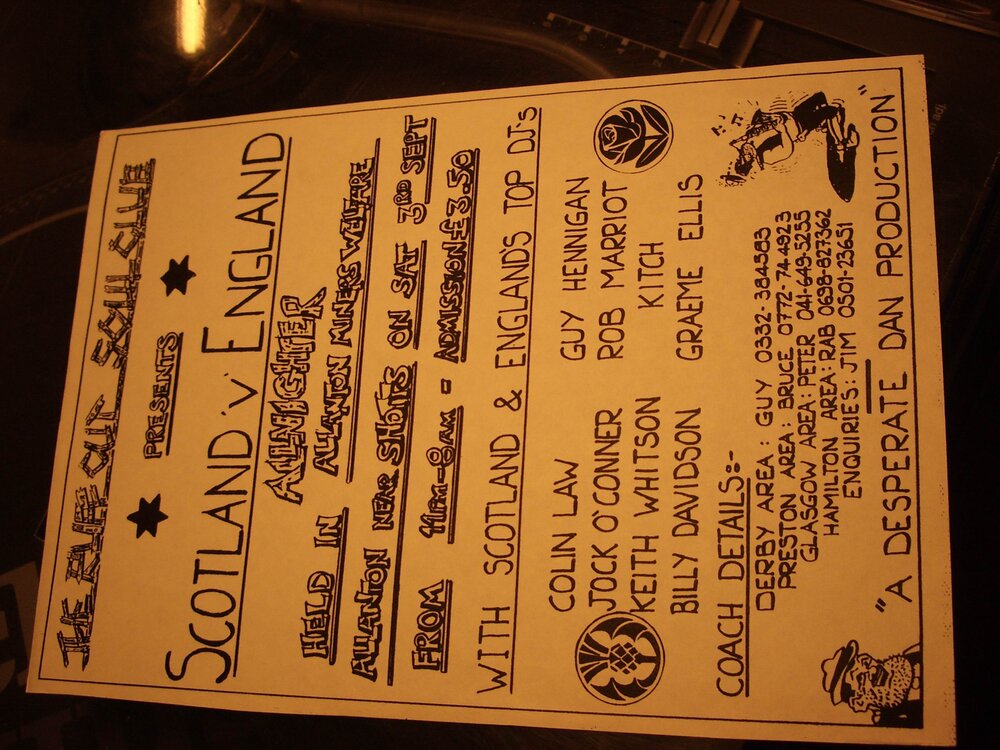 THE RAVE OUT SOUL CLUB
PRESENTS
SCOTLAND 'V' ENGLAND
ALLNIGHTER
HELD IN ALLANTON MINERS WELFARE
ALLANTON NEAR SHOTTS ON SAT 3RD SEPT
FROM 11PM-8AM - ADMISSION £3.50
WITH SCOTLAND & ENGLAND'S TOP DJ'S
COLIN LAW GUY HENNIGAN
JOCK O'CONNER ROB MARRIOT
KEITH WHITSON KITCH
BILLY DAVIDSON GRAEME ELLIS
COACH DETAILS:-
DERBY AREA: GUY 0332-384583
PRESTON AREA: BRUCE 0772-744923
GLASGOW AREA: PETER 041-649-5255
HAMILTON AREA: RAB 0698-827362
ENQUIRIES: JIM 0501-23651
"A DESPERATE DAN PRODUCTION"